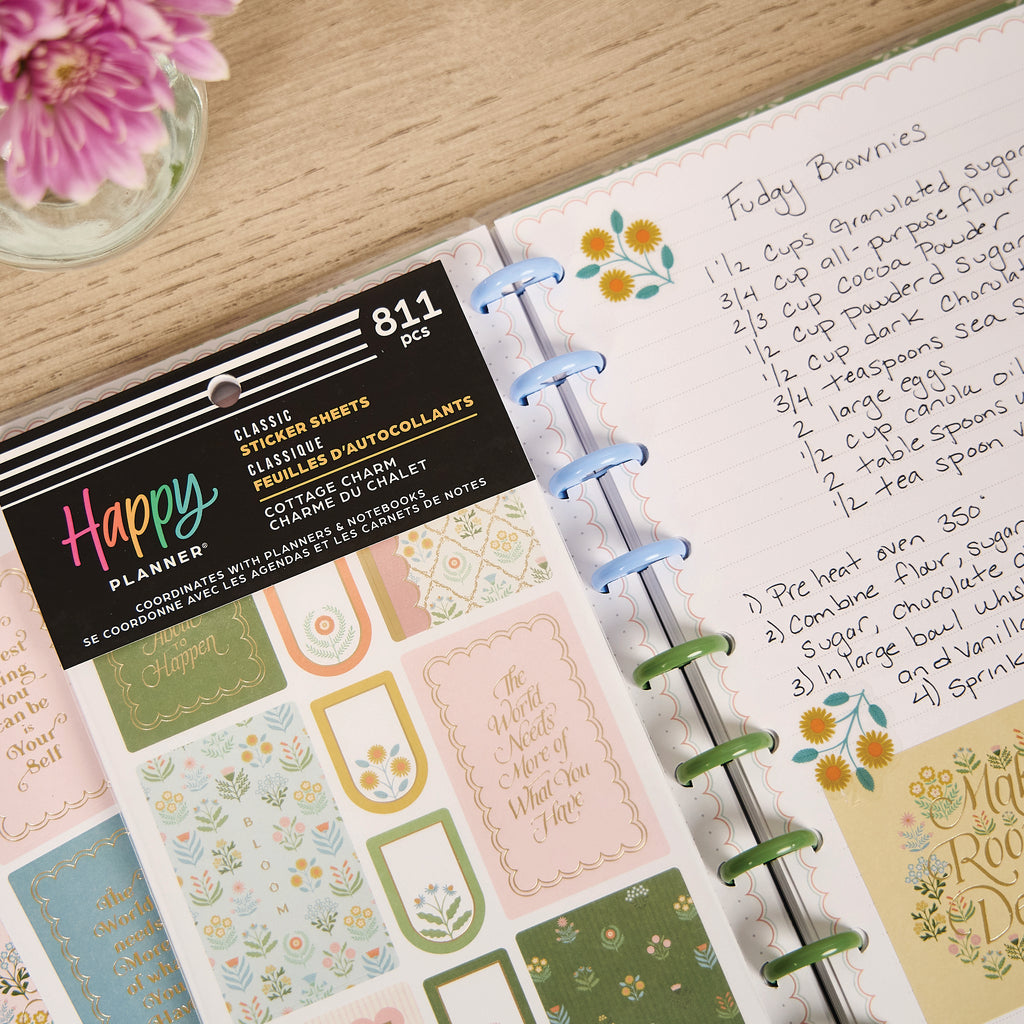 811
pcs
CLASSIC
STICKER SHEETS
CLASSIQUE
FEUILLES D'AUTOCOLLANTS
COTTAGE CHARM
CHARME DU CHALET
Happy
PLANNER®
COORDINATES WITH PLANNERS & NOTEBOOKS
SE COORDONNE AVEC LES AGENDAS ET LES CARNETS DE NOTES
About
to
Happen
The
World
Needs
More of
What You
Have
BLOOM
You
can be
is
Your
Self
The
World
needs
More
of what
You
Fudgy Brownies
1 1/2 cups Granulated sugar
3/4 cup all-purpose flour
2/3 cup cocoa Powder
1/2 cup powderd sugar
1/2 cup dark
3/4 teaspoons sea
2 large eggs
1/2 cup canola oil
2 table spoons
1/2 tea spoon
1) Pre heat oven 350°
2) Combine flour, sugar
sugar, chocolate
3) In large bowl
and vanilla
4) Sprink